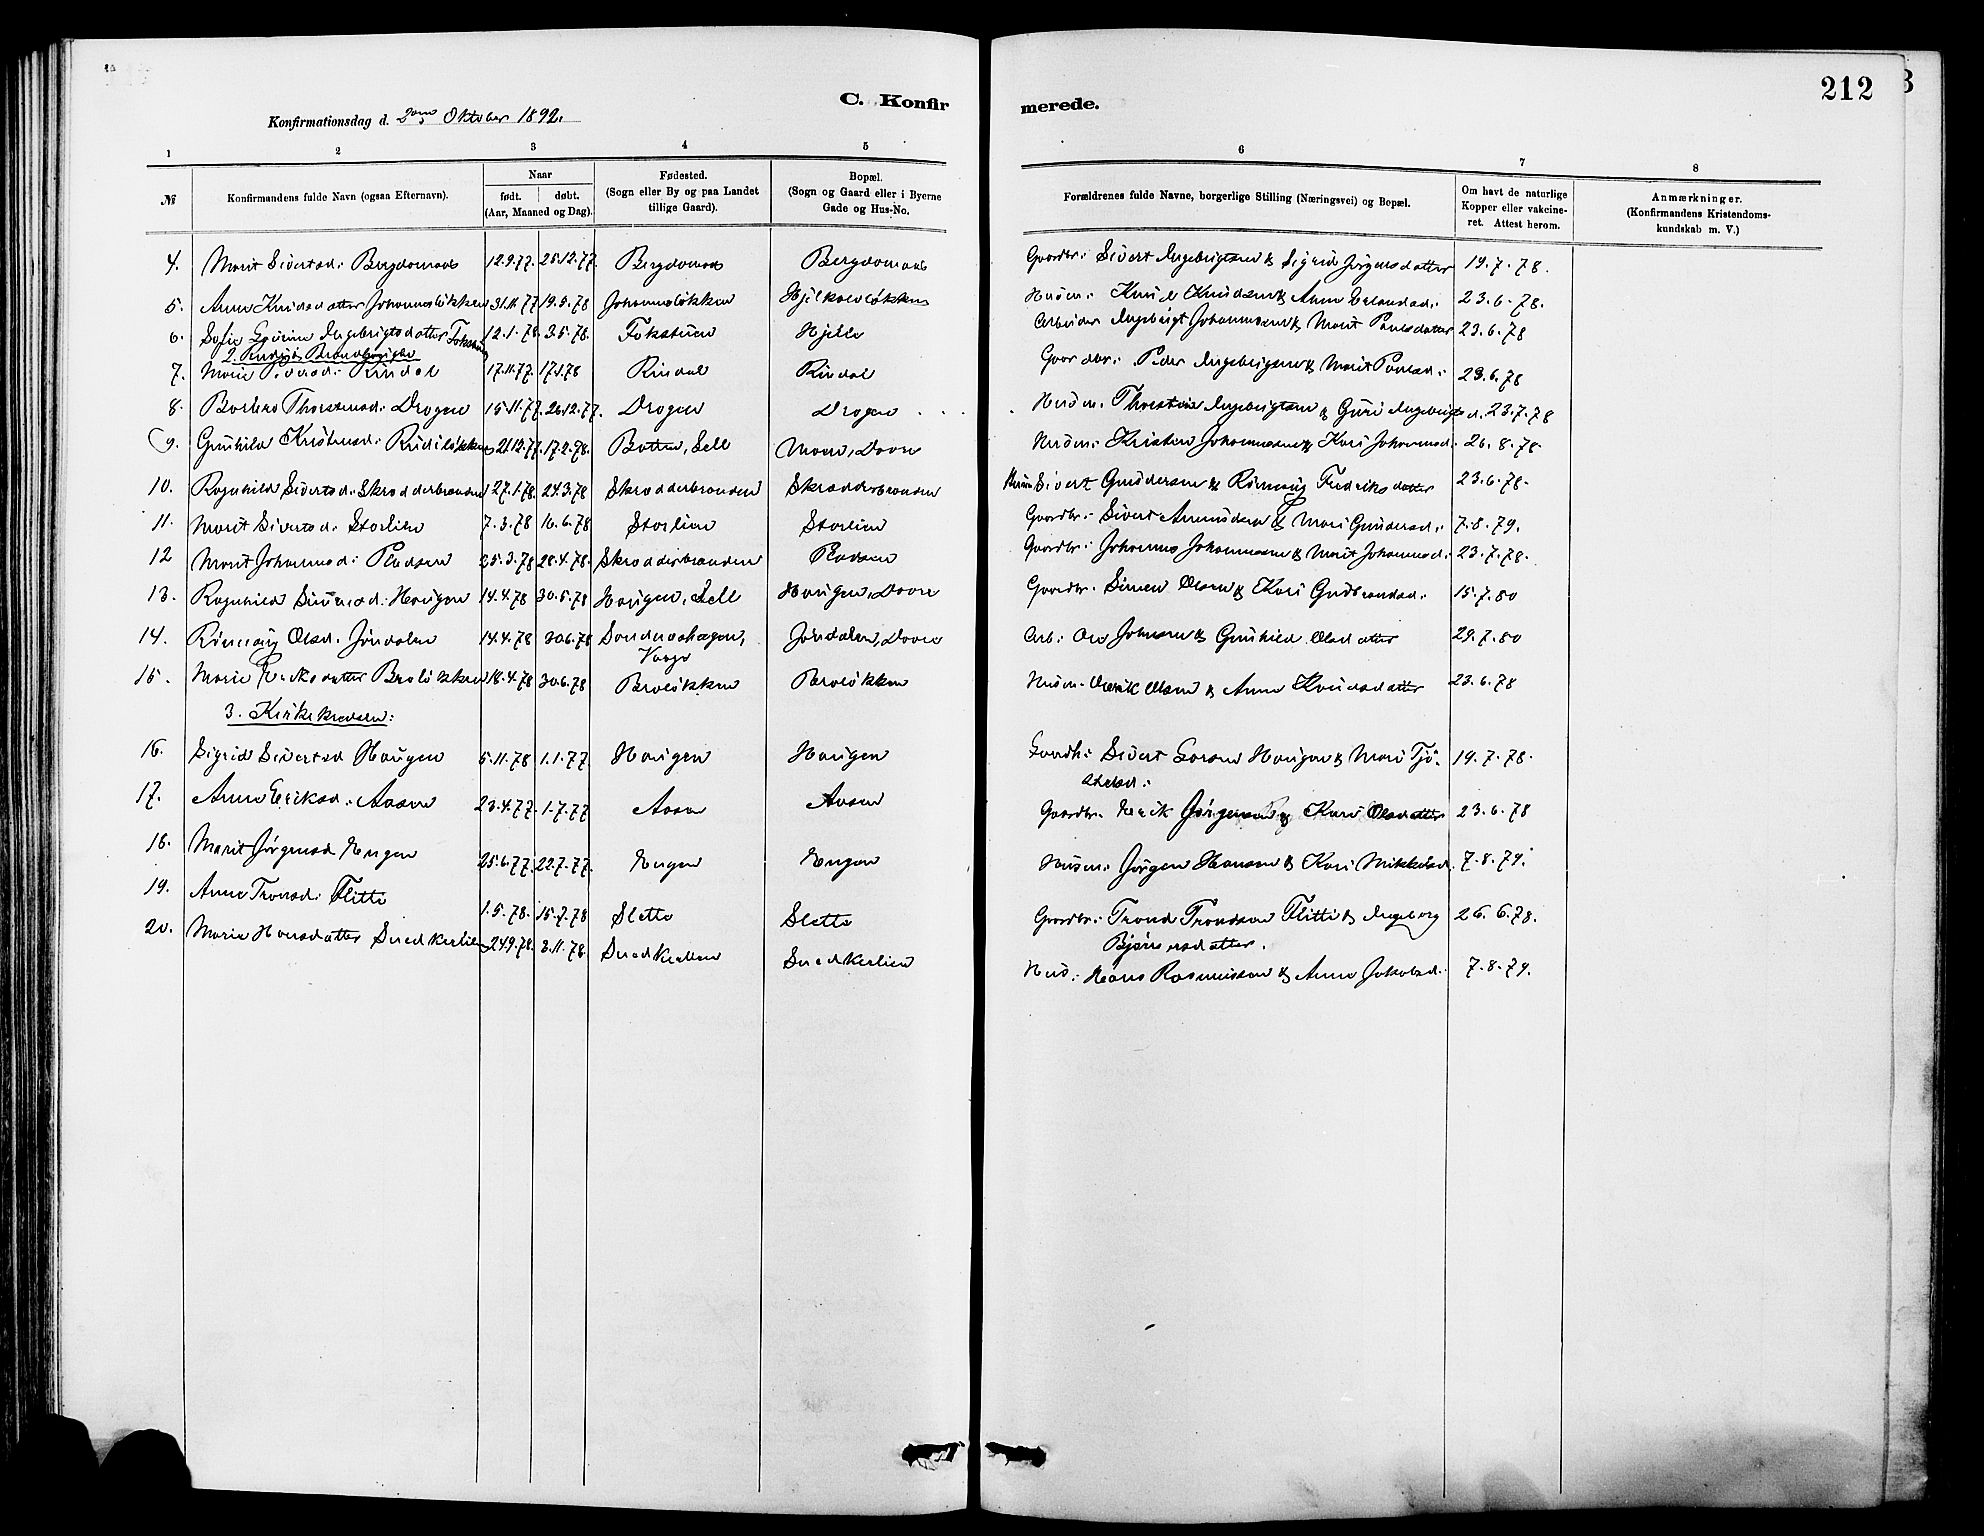 212
C. Konfirmerede.
Konfirmationsdag d. 2den Oktober 1892.
1 2 3 4 5 6 7 8
№ Konfirmandens fulde Navn (ogsaa Efternavn). Naar født. døbt. (Aar, Maaned og Dag). Fødested. (Sogn eller By og paa Landet tillige Gaard). Bopæl. (Sogn og Gaard eller i Byerne Gade og Hus-No. Forældrenes fulde Navne, borgerlige Stilling (Næringsvei) og Bopæl. Om havt de naturlige Kopper eller vakcineret. Attest herom. Anmærkninger. (Konfirmandens Kristendomskundskab m. V.)
4. Marit Sivertsd: Bergdomaas 12.9.77. 25.12.77. Bergdomaas Bergdomaas Gaardbr: Sivert Ingebrigtsen & Sigrid Jørgensdatter 19.7.78.
5. Anne Knudsdatter Johannesløkken 31.11.77 19.5.78 Johannesløkken Husm: Knud Knudsen & Anne Erlandsd: 23.6.78.
6. Sofie Ingebrigtsdatter 12.1.78. 3.5.78. Fokstuen Hjelle Arbeider Ingebrigt Johannesen & Marit Paulsdatter 23.6.78
7. Rindal 17.11.77. 17.1.78 Rindal Rindal Gaardbr: Peder Ingebrigtsen & Marit Paulsd: 23.6.78
8. Barbro Thorstensd: Drogen 15.11.77. 26.12.77. Drogen Drogen Husm. Thorstein Ingebrigtsen & Guri Ingebrigtsd. 23.7.78
9. Gunhild Kristensd: Rudiløkken 21.12.77. 17.2.78. Botten, Sell Moen, Dovre Husm: Kristen Johannesen & Kari Johannesd: 26.8.78.
10. Ragnhild Sivertsd: Skrædderbranden 27.1.78. 24.3.78 Skrædderbranden Skrædderbranden Husm Sivert Gundersen & Rønnaug Fredriksdatter 23.6.78.
11. Marit Sivertsd: Storlien 7.3.78 16.6.78 Storlien Storlien Gaardbr: Sivert Amundsen & Mari Gundersd: 7.8.79.
12 Marit Johannesd: Pladsen 25.3.78 28.4.78. Skrædderbranden Pladsen Gaardbr: Johannes Johannesen & Marit Johannesd: 23.7.78.
13. Ragnhild Simensd: Haugen 14.4.78 30.5.78 Haugen, Sell Haugen, Dovre Gaardbr. Simen Olsen & Kari Gudbrandsd: 15.7.80
14. Rønnaug Olsd. Jøndalen 14.4.78 30.6.78 Vaage Jøndalen, Dovre Arb: Ole Johnsen & Gunhild Olsdatter 29.7.80
15. Marie Eriksdatter Broløkken 18.4.78 30.6.78 Broløkken Broløkken Husm. Erik Olsen & Anne Knudsdatter 23.6.78
3. Kirkekredsen:
16. Sigrid Sivertsd Haugen 5.11.78 1.1.77. Haugen Haugen Gaardbr: Sivert Larsen Haugen & Mari 19.7.78.
17. Anne Eriksd: Aasen 23.4.77. 1.7.77 Aasen Aasen Gaardbr. Erik Jørgensen & Kari Olsdatter 23.6.78
18. Marit Jørgensd Engen 25.6.77. 22.7.77. Engen Engen Husm: Jørgen Hansen & Kari Mikkelsd 7.8.79.
19. Anne Tronsd: Flitti 1.5.78. 15.7.78 Sletto Sletto Gaardbr: Trond Trondsen Flitti & Ingeborg Bjørnersdatter. 26.6.78.
20. Marie Hansdatter Snedkerlien 24.9.78. 3.11.78. Snedkerlien Snedkerlien Hus: Hans Rasmussen & Anne Jakobsd: 7.8.79.